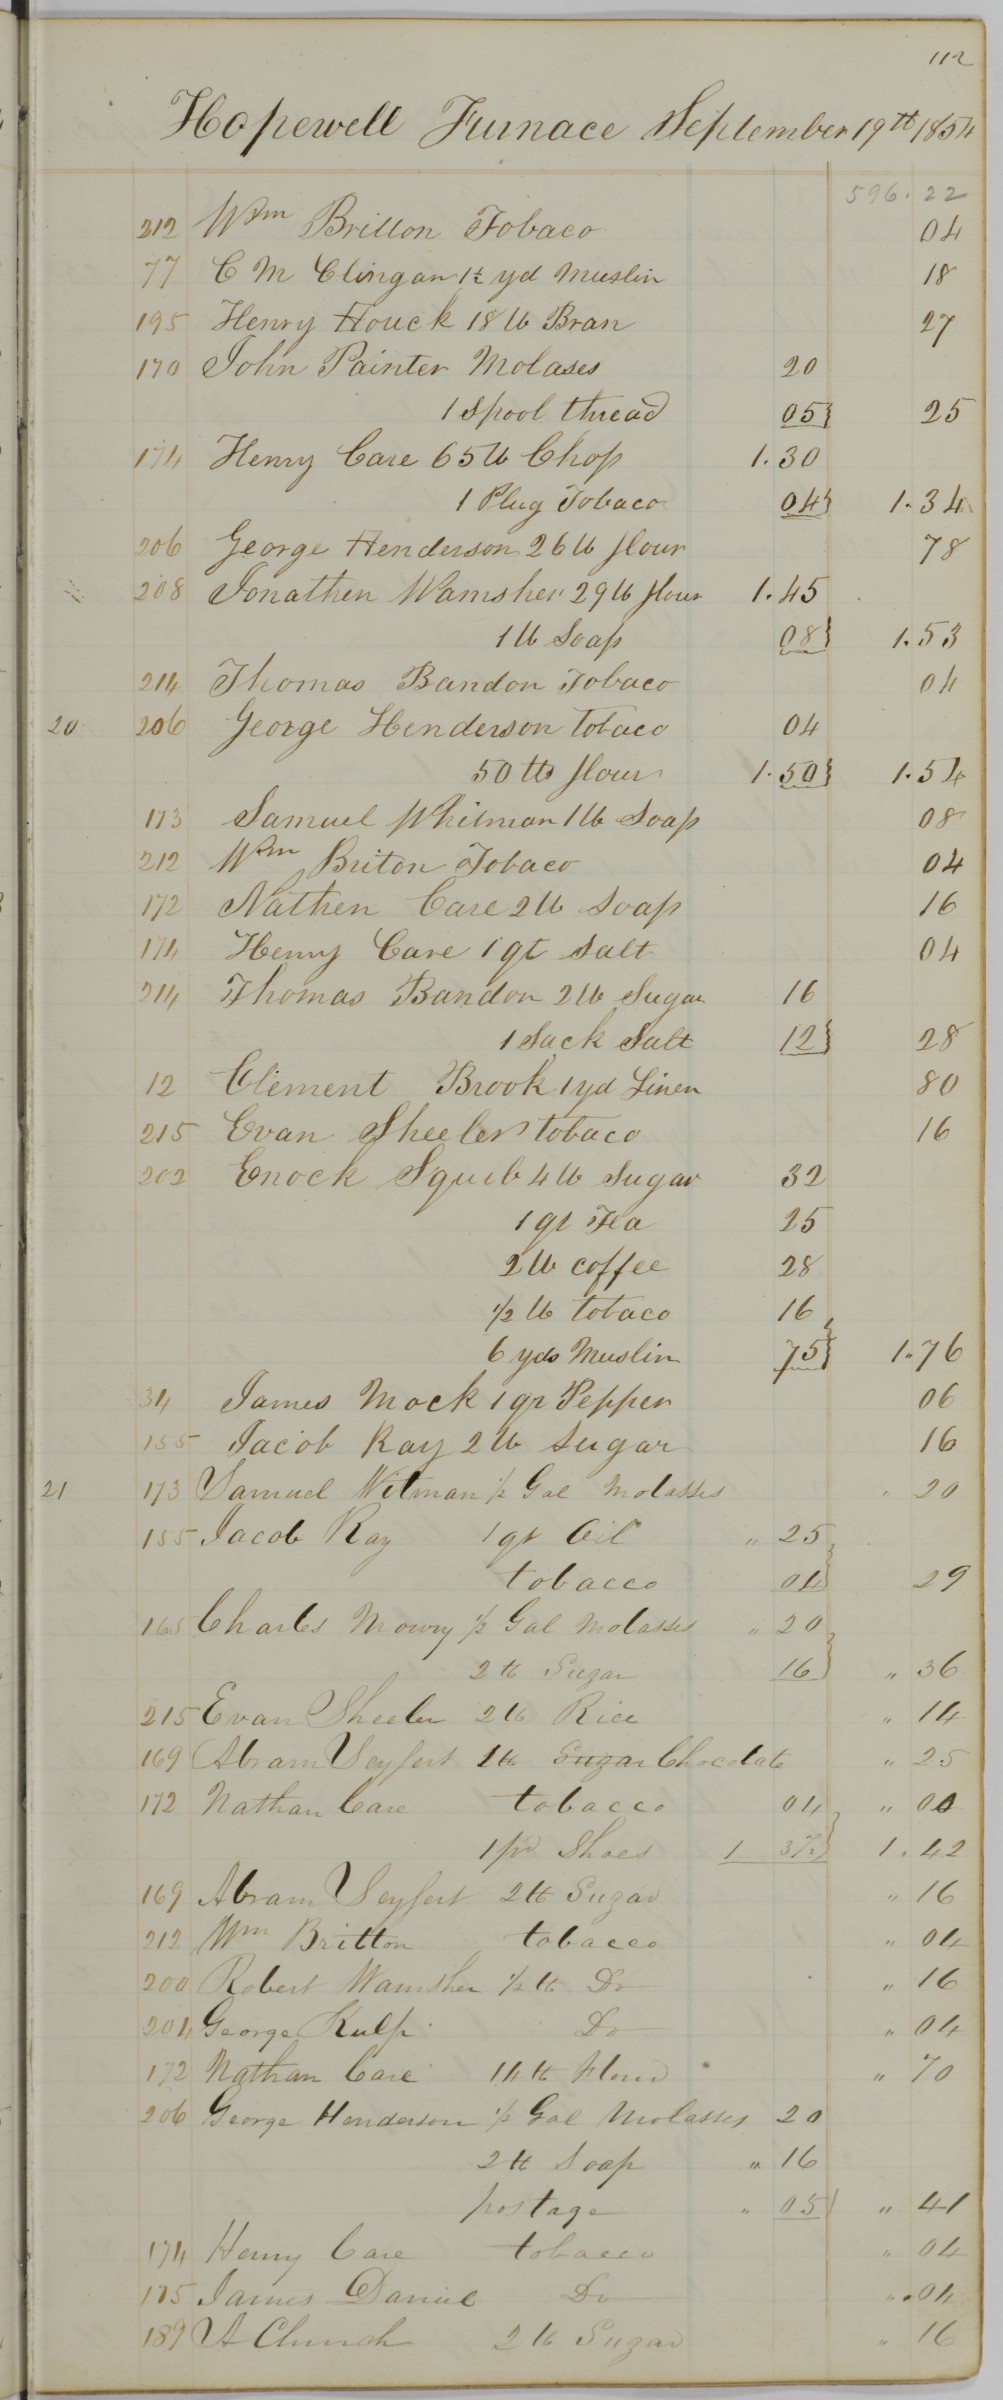 112
Hopewell Furnace September 19th 1854
596.22
212 Wm Britton Tobaco 04
77 C M Clingan 1½ yd Muslin 18
195 Henry Houck 18 lb Bran 27
170 John Painter Molases 20
1 Spool thread 05} 25
174 Henry Care 65 lb Chop 1.30
1 Plug Tobaco 04} 1.34
206 George Henderson 26 lb flour 78
208 Jonathen Wamsher 29 lb flour 1.45
1 lb Soap 08} 1.53
214 Thomas Bandon Tobaco 04
20 206 George Henderson Tobaco 04
50 lbs flour 1.50} 1.54
173 Samuel Whitman 1 lb Soap 08
212 Wm Briton Tobaco 04
172 Nathen Care 2 lb Soap 16
174 Henry Care 1 qt Salt 04
214 Thomas Bandon 2 lb Sugar 16
1 Sack Salt 12} 28
12 Clement Brook 1 yd Linen 80
215 Evan Sheeler tobaco 16
202 Enock Squib 4 lb Sugar 32
1 qr Tea 25
2 lb coffee 28
1/2 lb tobaco 16
6 yds Muslin 75} 1.76
34 James Mock 1 qr Pepper 06
155 Jacob Ray 2 lb Sugar 16
21 173 Samuel Witman 1/2 Gal Molasses 20
155 Jacob Ray 1 qt Oil " 25
tobacco 04} 29
165 Charles Mowry 1/2 Gal Molasses " 20
2 lb Sugar 16} " 36
215 Evan Sheeler 2 lb Rice " 14
169 Abram Seyfert 1 lb Sugar Chocolate " 25
172 Nathan Care tobacco 04 " 00
1 pr Shoes 1 37½} 1.42
169 Abram Seyfert 2 lb Sugar " 16
212 Wm Britton tobacco " 04
200 Robert Wamsher 1/2 lb Do " 16
204 George Kulp Do " 04
172 Nathan Care 14 lb Flour " 70
206 George Henderson 1/2 Gal Molasses 20
2 lb Soap " 16
postage " 05} " 41
174 Henry Care tobacco " 04
175 James Daniel Do " 04
189 A Church 2 lb Sugar " 16